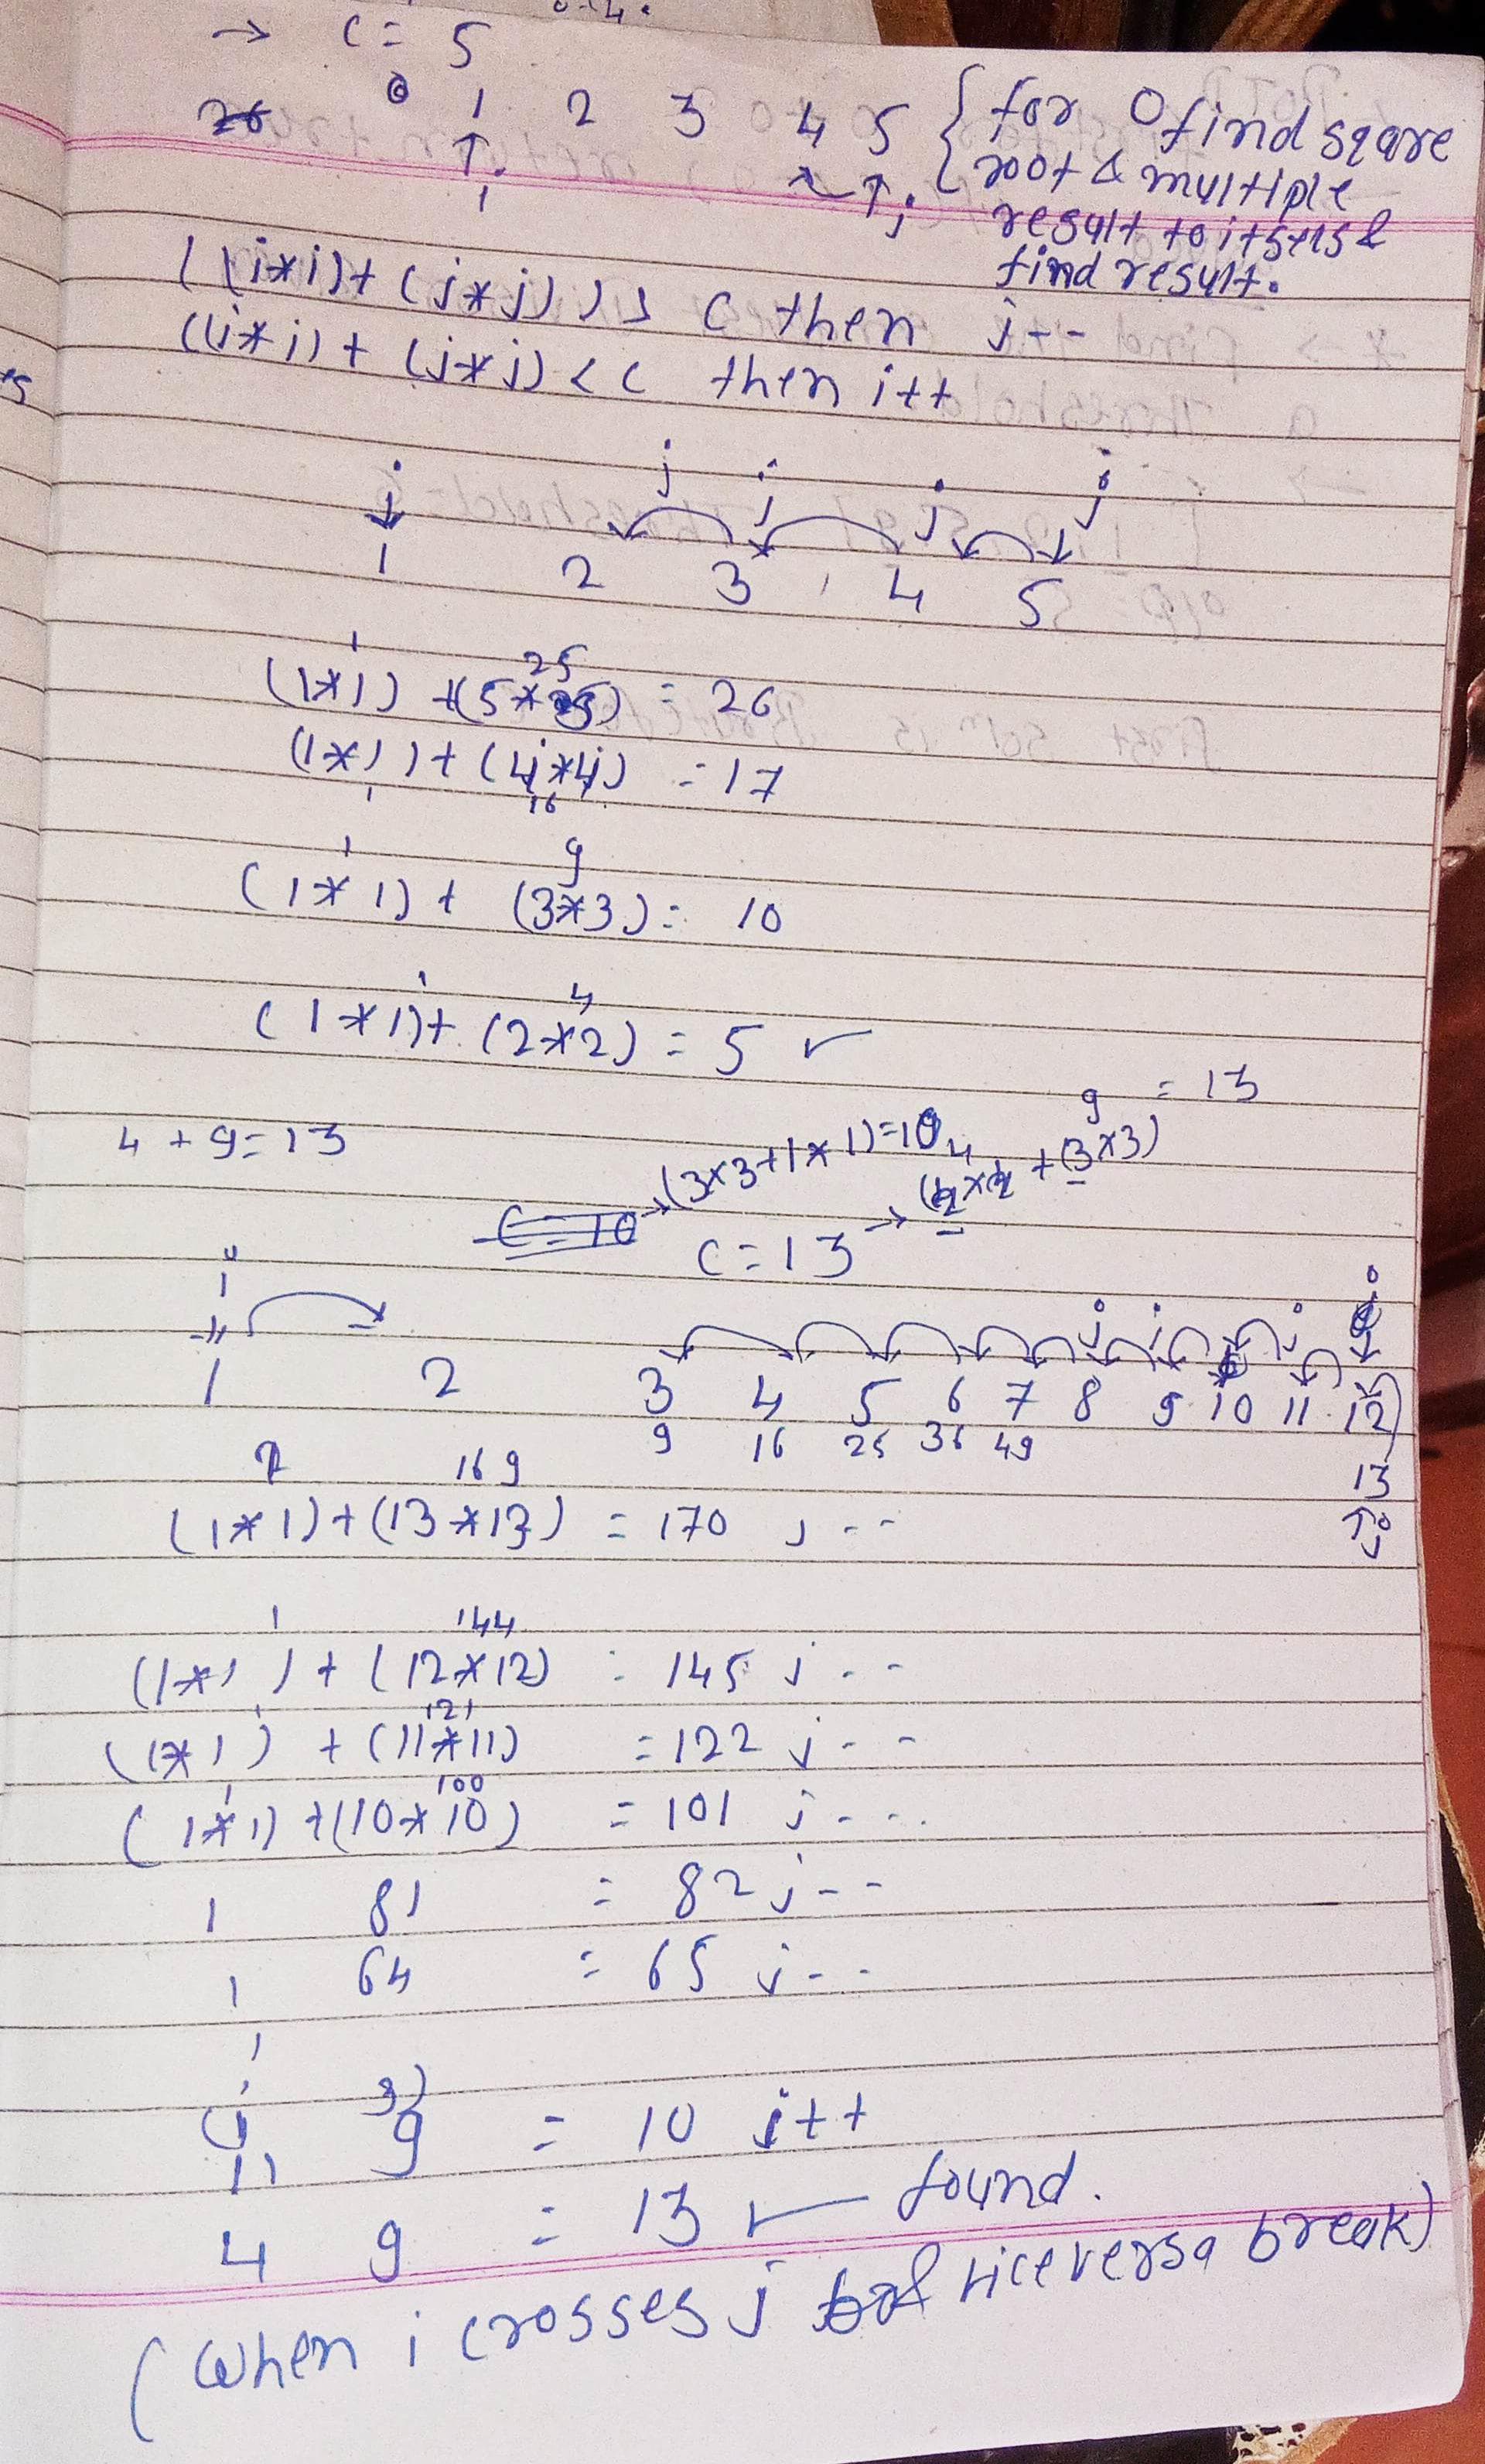 → C = 5
0 1 2 3 4 5 { for 0 find sqare
root & multiple
result to itself &
find result.
↑
i
↑
j
((i*i)+(j*j)) > C then j--
((i*i)+(j*j) < C then i++
i j j j j
1 2 3 4 5
1 25
(1*1) + (5*5) = 26
(1*1)+(4*4) = 17
1 16
1 9
(1*1)+ (3*3) = 10
1 4
(1*1)+ (2*2) = 5 ✓
4 + 9 = 13
C = 10 → (3*3+1*1)=10
C = 13 → (2*2 + (3*3) = 13
4 9
i j j j
1 2 3 4 5 6 7 8 9 10 11 12
9 16 25 36 49 13
↑
j
1 169
(1*1)+(13*13) = 170 j--
1 144
(1*1)+(12*12) = 145 j--
1 121
(1*1) + (11*11) = 122 j--
1 100
(1*1)+(10*10) = 101 j--
1 81 = 82 j--
1 64 = 65 j--
1 9 = 10 i++
4 9 = 13 ✓ found.
(when i crosses j viceversa break)